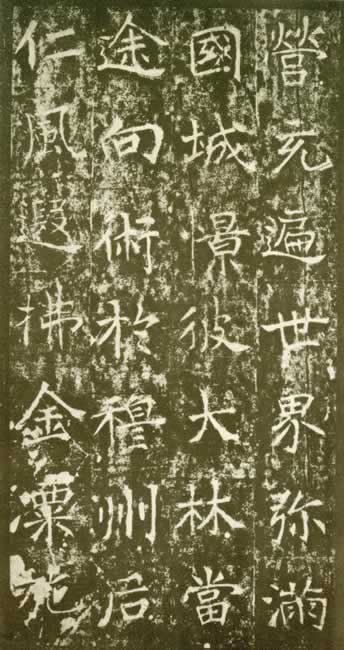 營充遍世界弥滿
國城景彼大林當
途向術於穆州后
仁風遐拂金施